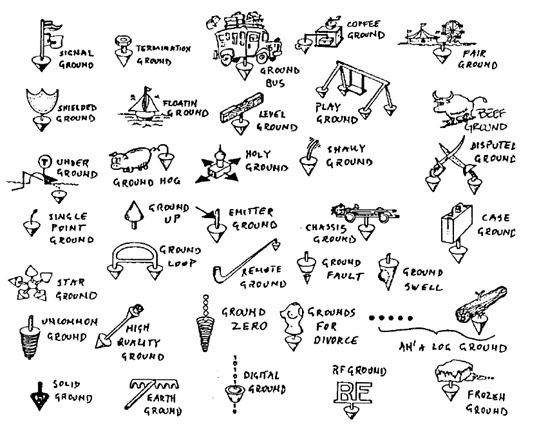 SIGNAL
GROUND
TERMINATION
GROUND
GROUND
BUS
COFFEE
GROUND
FAIR
GROUND
SHIELDED
GROUND
FLOATIN
GROUND
LEVEL
GROUND
PLAY
GROUND
BEEF
GROUND
T
UNDER
GROUND
GROUND HOG
HOLY
GROUND
SHAKY
GROUND
DISPUTED
GROUND
SINGLE
POINT
GROUND
GROUND
UP
EMITTER
GROUND
CHASSIS
GROUND
CASE
GROUND
STAR
GROUND
GROUND
LOOP
REMOTE
GROUND
GROUND
FAULT
GROUND
SWELL
UNCOMMON
GROUND
HIGH
QUALITY
GROUND
GROUND
ZERO
GROUNDS
FOR
DIVORCE
AN'A LOG GROUND
SOLID
GROUND
EARTH
GROUND
DIGITAL
GROUND
RF GROUND
RF
FROZEN
GROUND